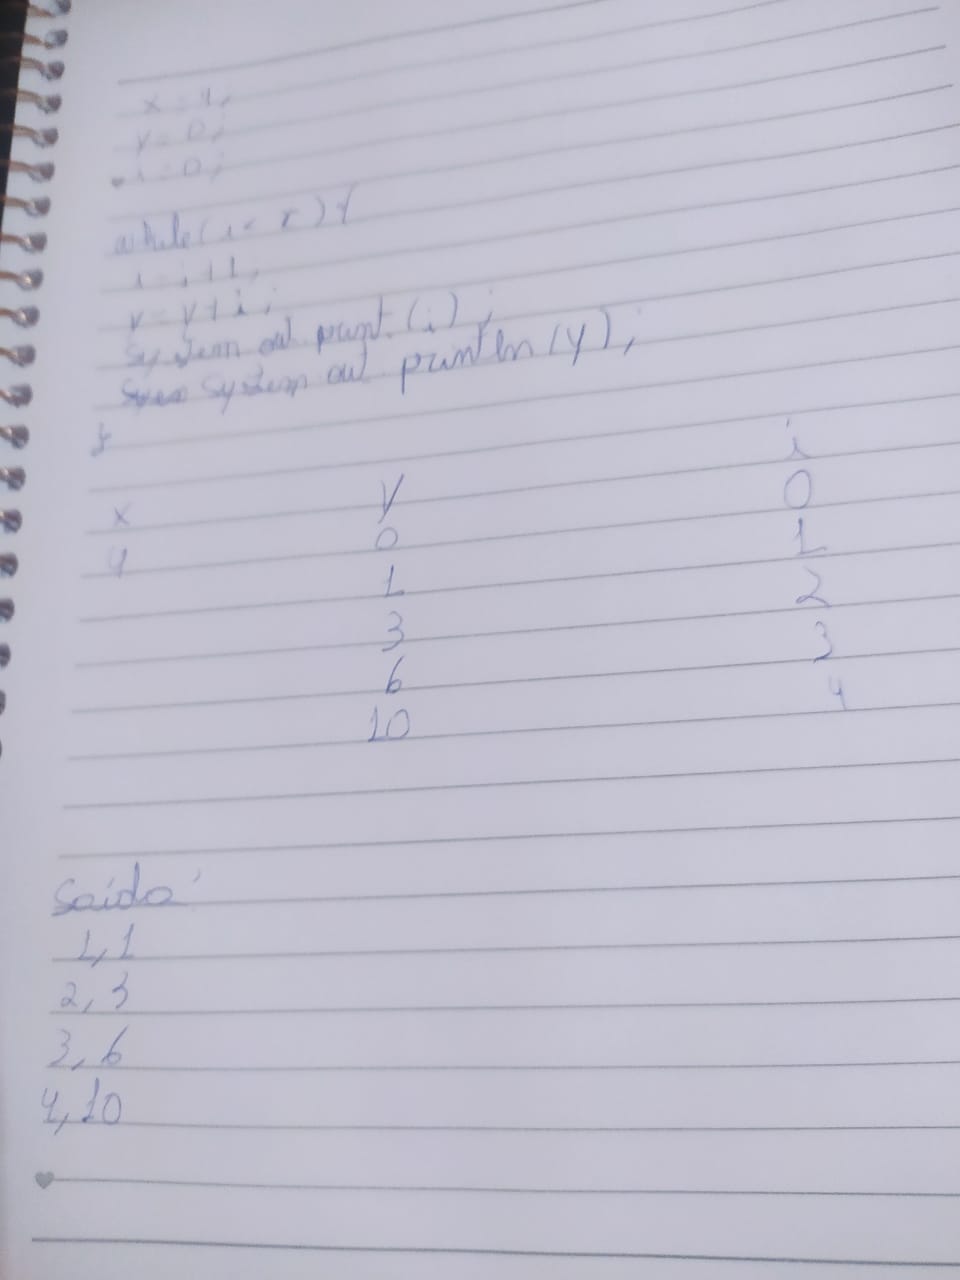 x = 4;
y = 0;
i = 0;
while (i < x) {
i = i + 1;
y = y + i;
System out print (i);
System out println (y);
}
x y i
4 0 0
1 1
3 2
6 3
10 4
Saída:
1, 1
2, 3
3, 6
4, 10